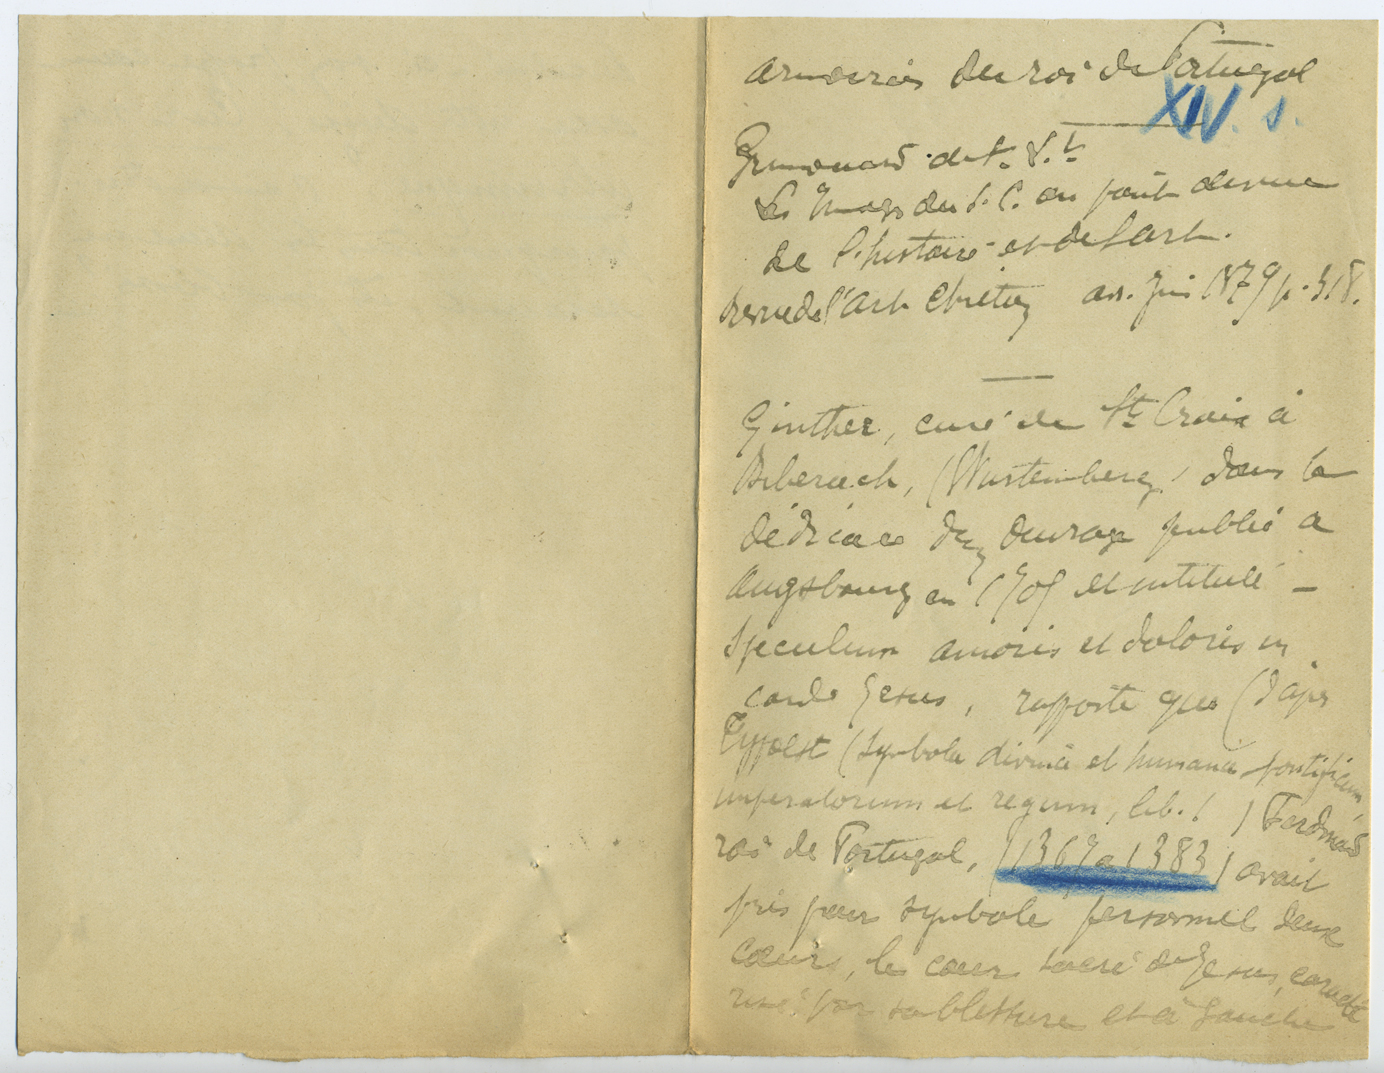 armoiries du roi de Portugal
XIV. s.
Grimouard de St. L.t
Les Images du S. C. au point de vue
de l'histoire et de l'art.
Revue de l'art chrétien an. juin 1879 p. 318.
Ginther, curé de Ste Croix à
Biberach, (Wurtemberg) dans la
dédicace d'un ouvrage publié à
Augsbourg en 1705 et intitulé -
Speculum amoris et doloris in
corde Jesus, rapporte que (d'après
Typotst (Symbola divina et humana pontificum
imperatorum et regum, lib. 1) Ferdinand
roi de Portugal, (1367 a 1383) avait
pris pour symbole personnel deux
coeurs, le coeur sacré de Jesus, caracté
risé par sa blessure et à gauche